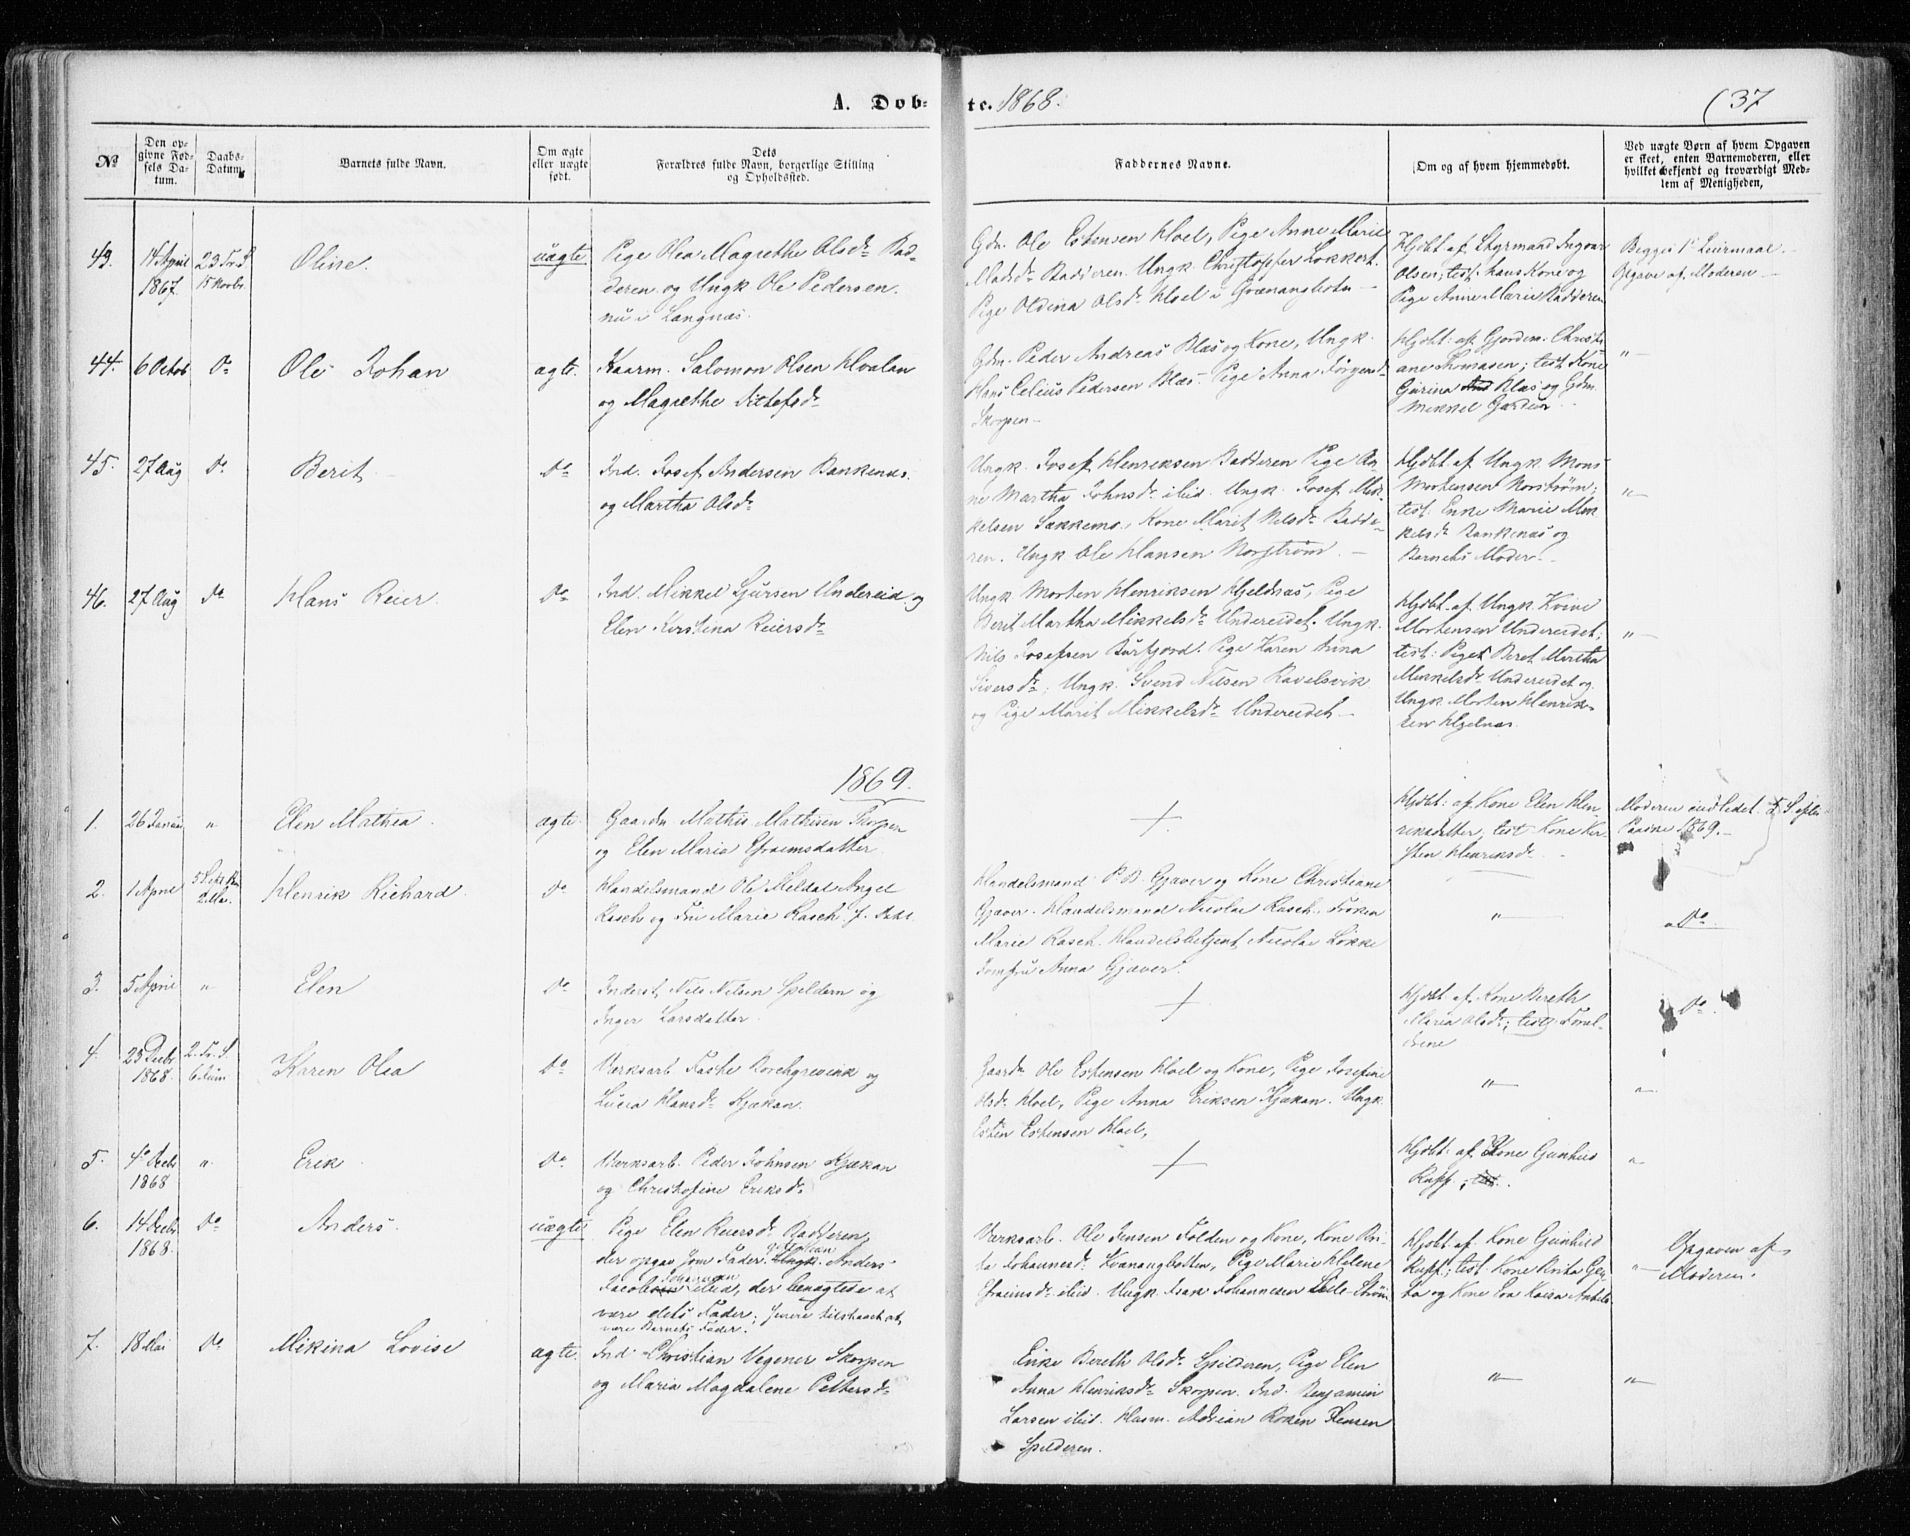 A. Dob-
te. 1868.
(37
No
Den op-
givne Fød-
sels Da-
tum.
Daabs-
Datum.
Barnets fulde Navn.
Om ægte
eller uægte
født.
Dets
Forældres fulde Navn, borgerlige Stilling
og Opholdssted.
Faddernes Navne.
Om og af hvem hjemmedøbt.
Ved uægte Børn af hvem Opgaven
er skeet, enten Barnemoderen, eller
hvilket bekjendt og troværdigt Med-
lem af Menigheden,
43.
14 April
1867.
23 Tr. S.
15 Novbr
Oline.
uægte
Pige Olea Magrethe Olsdr Bad-
deren og Ungk Ole Pedersen.
nu i Langnæs.
Gdm. Ole Estensen Hoel, Pige Anne Marie
Madsdr Badderen. Ungk. Christopher Lokkert.
Pige Oldina Olsdr Hoel i Qvænangbotn —
Hjdbt af Styrmand Ingvar
Olsen; test. hans Kone og
Pige Anne Marie Badderen
Begges 1ste Leiermaal.
Opgave af Moderen. —
44.
6 Octob
Do
Ole Johan
ægte.
Kaarm. Salomon Olsen Hvalan
og Magrethe Ditlefsdr
Gdm. Peder Andreas Blæs og Kone, Ungk.
Hans Celius Pedersen Blæs. Pige Anna Jörgensdr
Skorpen —
Hjdbt: af Gjordem. Christi-
ane Thomasen; test. Kone
Gjurina Blæs og Gdm.
Mikkel Gardier.
"
45.
27 Aug
Do
Berit
Do
Ind. Josef Andersen Bankenæs.
og Martha Olsdr
Ungk. Josef Henriksen Badderen Pige An-
ne Martha Johnsdr ibid. Ungk. Josef Mik-
kelsen Sakkemo, Kone Marit Nilsdr Badde-
ren. Ungk Ole Hansen Norstrøm. —
Hjdbt. af Ungk Mons
Mortensen Norstrøm;
test: Enke Marie Mik-
kelsdr Bankenæs og
Barnets Moder. —
"
46.
27 Aug
Do
Hans Reier.
Do
Ind. Mikkel Sjursen Undereid. og
Elen Kirstina Reiersdr
Ungk Morten Henriksen Hjelnæs, Pige
Berit Martha Mikkelsdr Undereidet. Ungk.
Nils Josefsen Burfjord. Pige Karen Anna
Siversdr; Ungk. Svend Nilsen Ravelsvik
og Pige Marit Mikkelsdr Undereidet —
Hjdbt. af Ungk.
Mortensen Undereidet;
test: Pige Beret Martha
Mikkelsdr Undereidet og
Ungk Morten Henrik-
sen Hjelnæs.
"
1869.
1.
26 Januar
"
Elen Mathea.
ægte.
Gaardm. Mathis Mathisen Skorpen
og Elen Maria Efraimsdatter.
+
Hjdbt: af Kone Elen Hen-
riksdatter, test Kone Kir-
sten Henriksdr
Moderen indledet
Paaske 1869. —
2.
1 April
Henrik Richard
Do
Handelsmand Ole Meldal Angel
Rasch og Fru Marie Rasch.
Handelsmand P. D. Gjæver og Kone Christiane
Gjæver. Handelsmand Nicolai Rasch. Frøken
Marie Rasch. Handelsbetjent Nicolai Løkke
Jomfru Anna Gjæver.
"
Do.
3.
5 April
"
Elen
Do
Inderst Nils Nilsen Spildern og
Inger Larsdatter.
+
Hjdbt. af Kone Bereth
Maria Olsdr; test: Foræl-
drene
Do.
4.
23 Decbr
1868.
2. Tr. S.
6 Juni
Karen Olea
Do
Værksarb. Faste Borchgrevink og
Lucia Hansdr Kjækan.
Gaardm Ole Estensen Hoel og Kone, Pige Josefine
Olsdr Hoel, Pige Anna Eriksen Kjækan. Ungk.
Esten Estensen Hoel,
"
"
5.
4de Decbr
1868
"
Erik
Do
Værksarb. Peder Johnsen Kjækan
og Christofine Eriksdr
+
Hjdbt: af Kone Gunhild
Rapp; test.
"
6.
14 Decbr
1868.
Do
Anders.
uægte
Pige Elen Reiersdr Badderen,
der opgav som Fader: Anders
Jacob Johannesen ibid, der benægtede at
være dets Fader; senere tilstaaet at
være Barnets Fader.
Værksarb. Ole Jensen Folden og Kone, Kone Bri-
ta Johannesdr Kvænangbotten, Pige Marie Helene
Efraimsdr ibid. Ungk Isak Johannesen Lille-Strøm
Hjdbt. af Kone Gunhild
Rapp; test: Kone Brita Gre-
ta og Kone Eva Kaisa
"
Opgaven af
Moderen.
7.
18 Mai
Do
Mikina Lovise
ægte.
Ind. Christian Vegener Skorpen
og Maria Magdalene Pettersdr
Enke Bereth Olsdr Spilderen, Pige Elen
Anna Henriksdr Skorpen. Ind. Benjamin
Larsen ibid. Husm. Adrian Jensen
Spilderen.
"
"